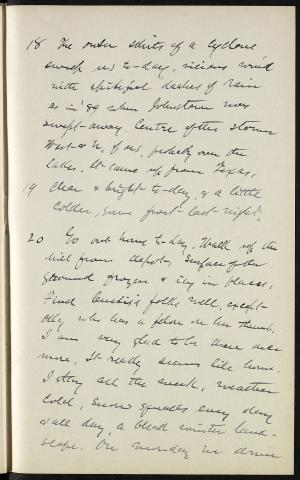 18 The outer skirts of a cyclone
sweep us to-day, vicious wind
with spiteful dashes of rain
as in '89 when Johnstown was
swept away. Centre of the storm
West & N. of us, probably over the
lakes. It came up from Texas.
19 Clear & bright to-day, & a little
colder, some frost last night.
20 Go out home to-day. Walk up the
hill from depot. Surface of the
ground frozen & icy in places.
Find folks well, except
who has a felon on her thumb.
I am very glad to be there once
more. It really seems like home.
I stay all the week, weather
cold, snow squalls every day
& all day, a bleak winter land-
scape. On Monday we drive